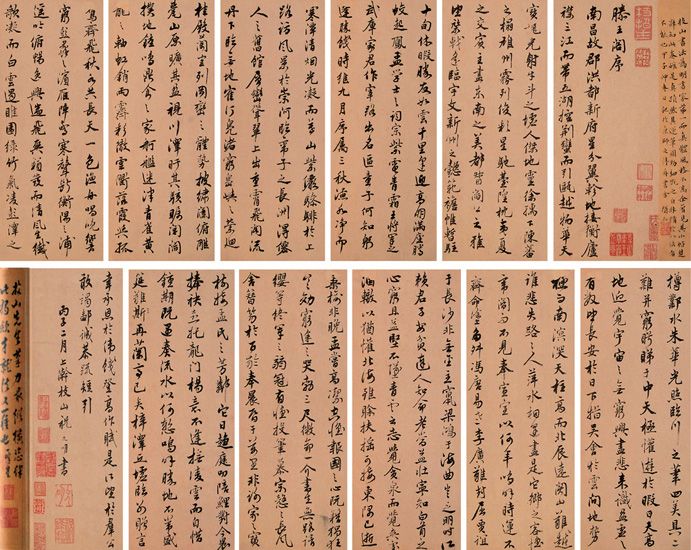 滕王閣序
南昌故郡洪都新府星分翼軫地接衡廬
襟三江而帶五湖控荊蠻而引甌越物華天
寶龍光射牛斗之墟人傑地靈徐孺下陳蕃
之榻雄州霧列俊彩星馳臺隍枕夷夏
之交賓主盡東南之美都督閻公之雅
望棨戟遙臨宇文新州之懿範襜帷暫駐
十旬休暇勝友如雲千里逢迎高朋滿座騰
蛟起鳳孟學士之詞宗紫電青霜王將軍之
武庫家君作宰路出名區童子何知躬
逢勝餞時維九月序屬三秋潦水淨而
寒潭清煙光凝而暮山紫儼驂騑於上
路訪風景於崇阿臨帝子之長洲得仙
人之舊館層巒聳翠上出重霄飛閣流
丹下臨無地鶴汀鳧渚窮島嶼之縈迴
桂殿蘭宮列岡巒之體勢披繡闥俯雕
甍山原曠其盈視川澤盱其駭矚閭閻
撲地鐘鳴鼎食之家舸艦迷津青雀黃
龍之軸虹銷雨霽彩徹雲衢落霞與孤
鶩齊飛秋水共長天一色漁舟唱晚響
窮彭蠡之濱雁陣驚寒聲斷衡陽之浦
遙吟俯暢逸興遄飛爽籟發而清風生纖
歌凝而白雲遏睢園綠竹氣凌彭澤之
樽鄴水朱華光照臨川之筆四美具二
難并窮睇眄於中天極娛遊於暇日天高
地迥覺宇宙之無窮興盡悲來識盈虛之
有數望長安於日下指吳會於雲間地勢
極而南溟深天柱高而北辰遠關山難越
誰悲失路之人萍水相逢盡是他鄉之客懷
帝閽而不見奉宣室以何年嗚呼時運不
齊命途多舛馮唐易老李廣難封屈賈誼
於長沙非無聖主竄梁鴻於海曲豈乏明時所
賴君子安貧達人知命老當益壯寧知白首之
心窮且益堅不墜青雲之志酌貪泉而覺爽處
涸轍以猶懽北海雖賒扶搖可接東隅已逝
桑榆非晚孟嘗高潔空懷報國之心阮籍猖狂
豈效窮途之哭勃三尺微命一介書生無路請
纓等終軍之弱冠有懷投筆慕宗愨之長風
舍簪笏於百齡奉晨昏於萬里非謝家之寶
樹接孟氏之芳鄰他日趨庭叨陪鯉對今晨
捧袂喜託龍門楊意不逢撫凌雲而自惜
鍾期既遇奏流水以何慙嗚呼勝地不常盛
筵難再蘭亭已矣梓澤丘墟臨別贈言
幸承恩於偉餞登高作賦是所望於羣公
敢竭鄙誠恭疏短引
丙子二月 枝山祝允明書